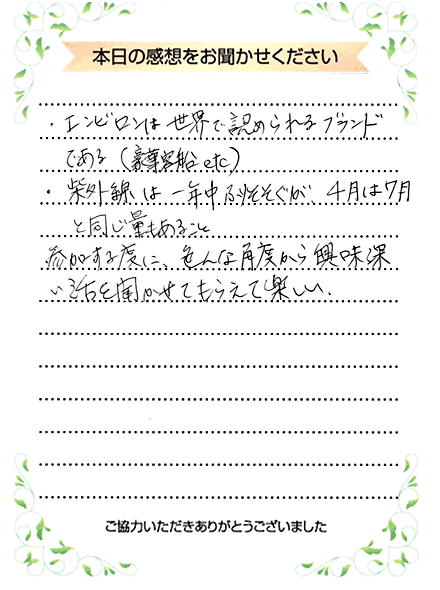 本日の感想をお聞かせください
・エンビロンは世界で認められるブランド
である（豪華客船etc）
・紫外線は一年中ふりそそぐが、4月は7月
と同じ量もあること
参加する度に、色んな角度から興味深
い話を聞かせてもらえて楽しい.
ご協力いただきありがとうございました